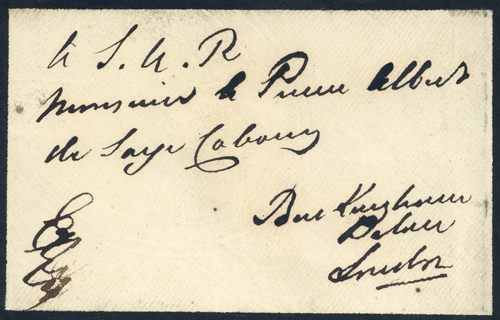 A S. A. R
Monsieur le Prince Albert
de Saxe Cobourg
Buckingham
Palace
London